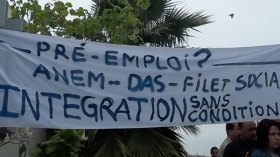 PRÉ-EMPLOI?
ANEM-DAS-FILET SOCIAL
INTEGRATION SANS CONDITION